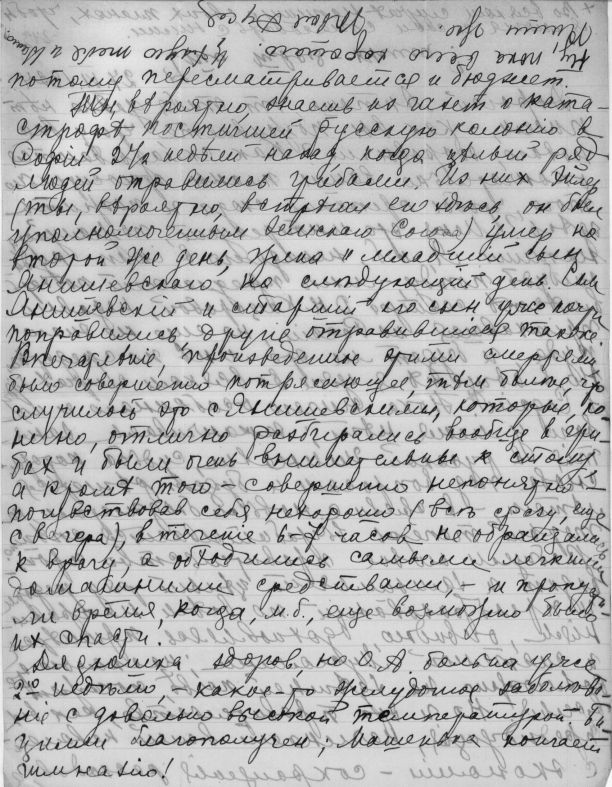 потому пересматривается и бюджет.
Ты, вѣроятно, знаешь из газет о ката-
строфѣ постигшей русскую колонію в
Софіи 2½ недѣли назад, когда цѣлый ряд
людей отравились грибами. Из них
(ты, вѣроятно, встрѣчал его здѣсь, он был
уполномоченным Земскаго Союза) умер на
второй же день, жена и младшій сын
Янишевскаго, на слѣдующій день. Сам
Янишевскій и старшій его сын уже почти
поправились, другіе отравившіеся также.
Впечатлѣніе, произведенное этими смертями
было совершенно потрясающее, тѣм болѣе, что
случилось это с Янишевскими, которые, ко-
нечно, отлично разбирались вообще в гри-
бах и были очень внимательны к столу
а кромѣ того – совершенно непонятно –
почувствовав себя нехорошо (всѣ сразу, еще
с вечера), в теченіе 6-7 часов не обращались
к врачу, а обходились самыми легкими
домашними средствами, – и пропусти-
ли время, когда, м.б., еще возможно было
их спасти.
Дядюшка здоров, но О.А. больна уже
2ю недѣлю, – какое-то желудочное заболѣва-
ніе с довольно высокой температурой.
благополучен; Машенька кончает
гимназію!